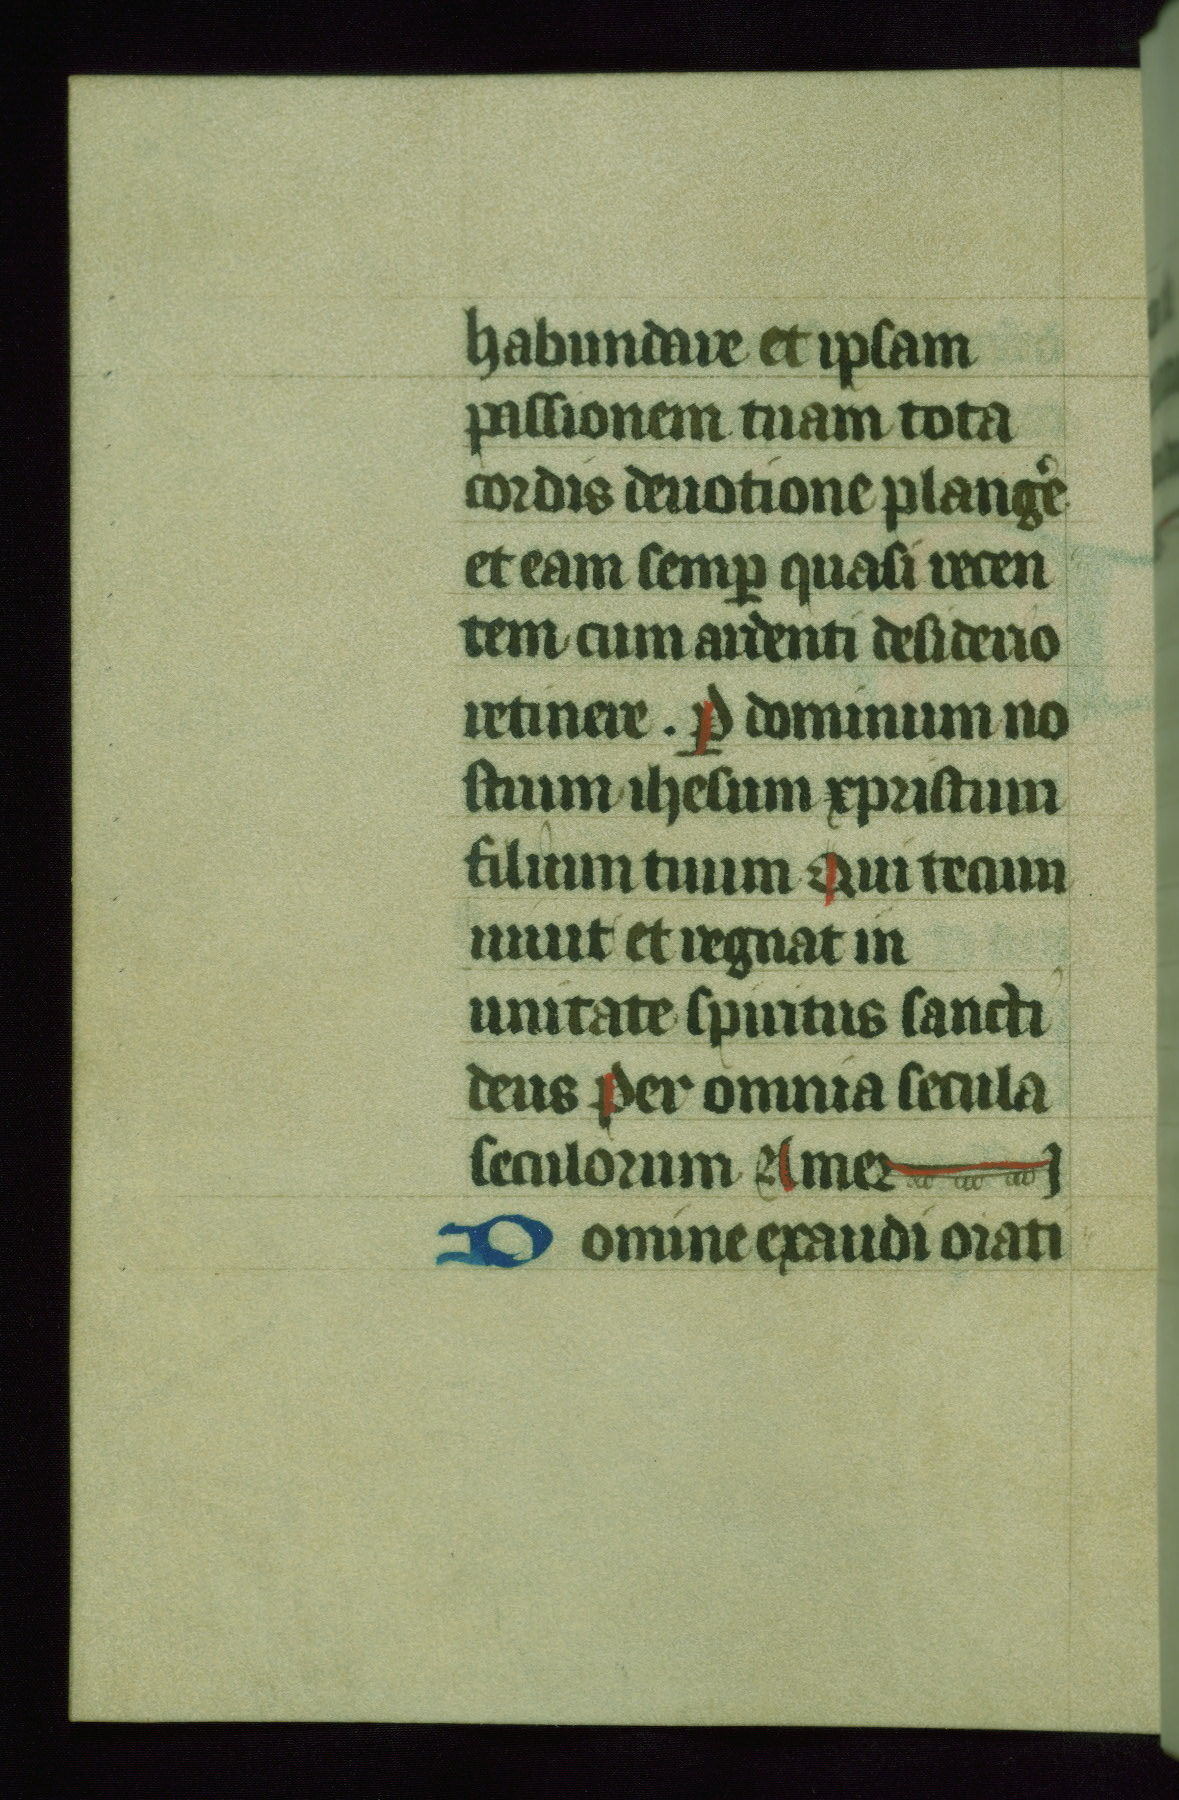 habundare et ipsam
passionem tuam tota
cordis deuotione plang̾e
et eam semꝑ quasi recen
tem cum ardenti desiderio
retinere . Ꝑ dominum no
strum ihesum xpristum
filium tuum Qui tecum
uiuit et regnat in
unitate spiritus sancti
deus Per omnia secula
seculorum Amen
Domine exaudi orati